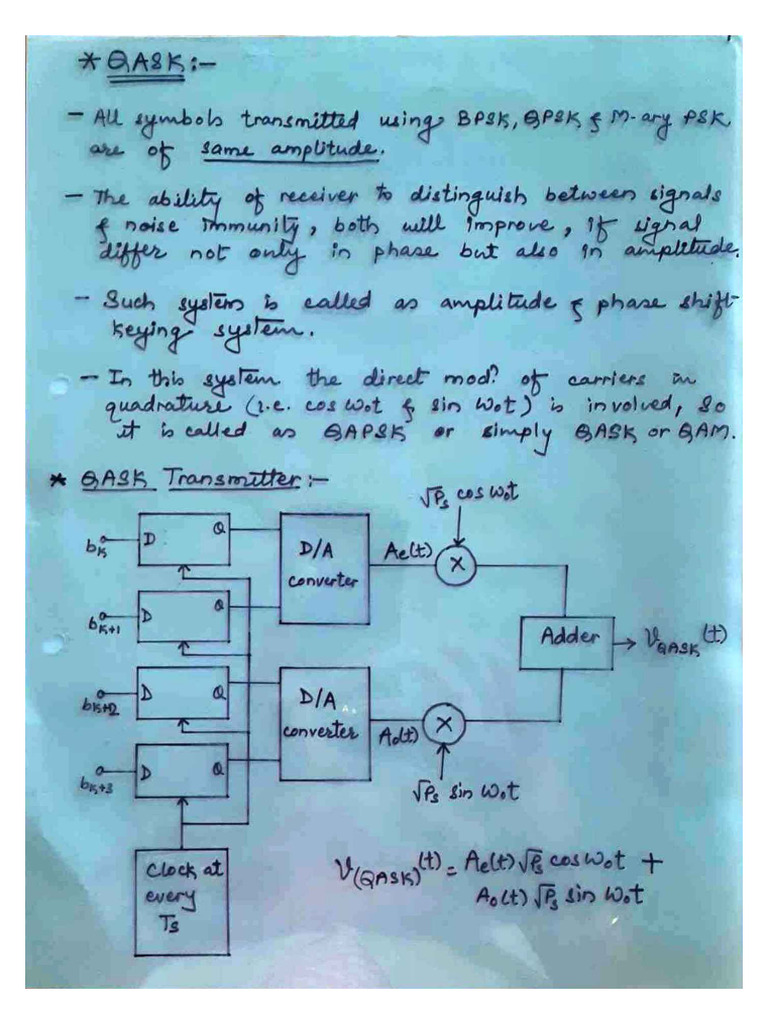 * QASK :-
- All symbols transmitted using BPSK, QPSK & M-ary PSK
are of same amplitude.
- The ability of receiver to distinguish between signals
& noise immunity, both will improve, if signal
differ not only in phase but also in amplitude.
- Such system is called as amplitude & phase shift-
keying system.
- In this system the direct modⁿ of carriers in
quadrature (i.e. cos ω₀t & sin ω₀t) is involved, so
it is called as QAPSK or simply QASK or QAM.
* QASK Transmitter :-
√Ps cos ω₀t
bK
D
Q
D/A
converter
Ae(t)
X
bK+1
D
Q
Adder
VQASK(t)
bK+2
D
Q
D/A
converter
Ao(t)
X
bK+3
D
Q
√Ps sin ω₀t
Clock at
every
Ts
V(QASK)(t) = Ae(t) √Ps cos ω₀t +
Ao(t) √Ps sin ω₀t